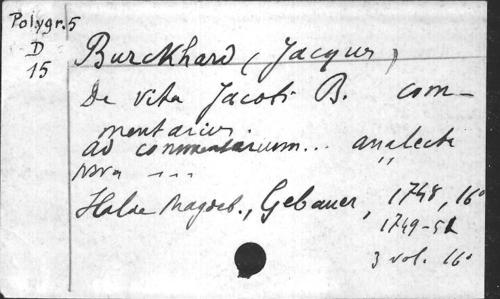 Polygr. 5
D
15
Burckhard (Jacques)
De vita Jacobi B. com-
mentarius.
ad commentarium... analecta
nova ...
Halae Magdeb., Gebauer, 1748, 16°
1749-51
3 vol. 16°